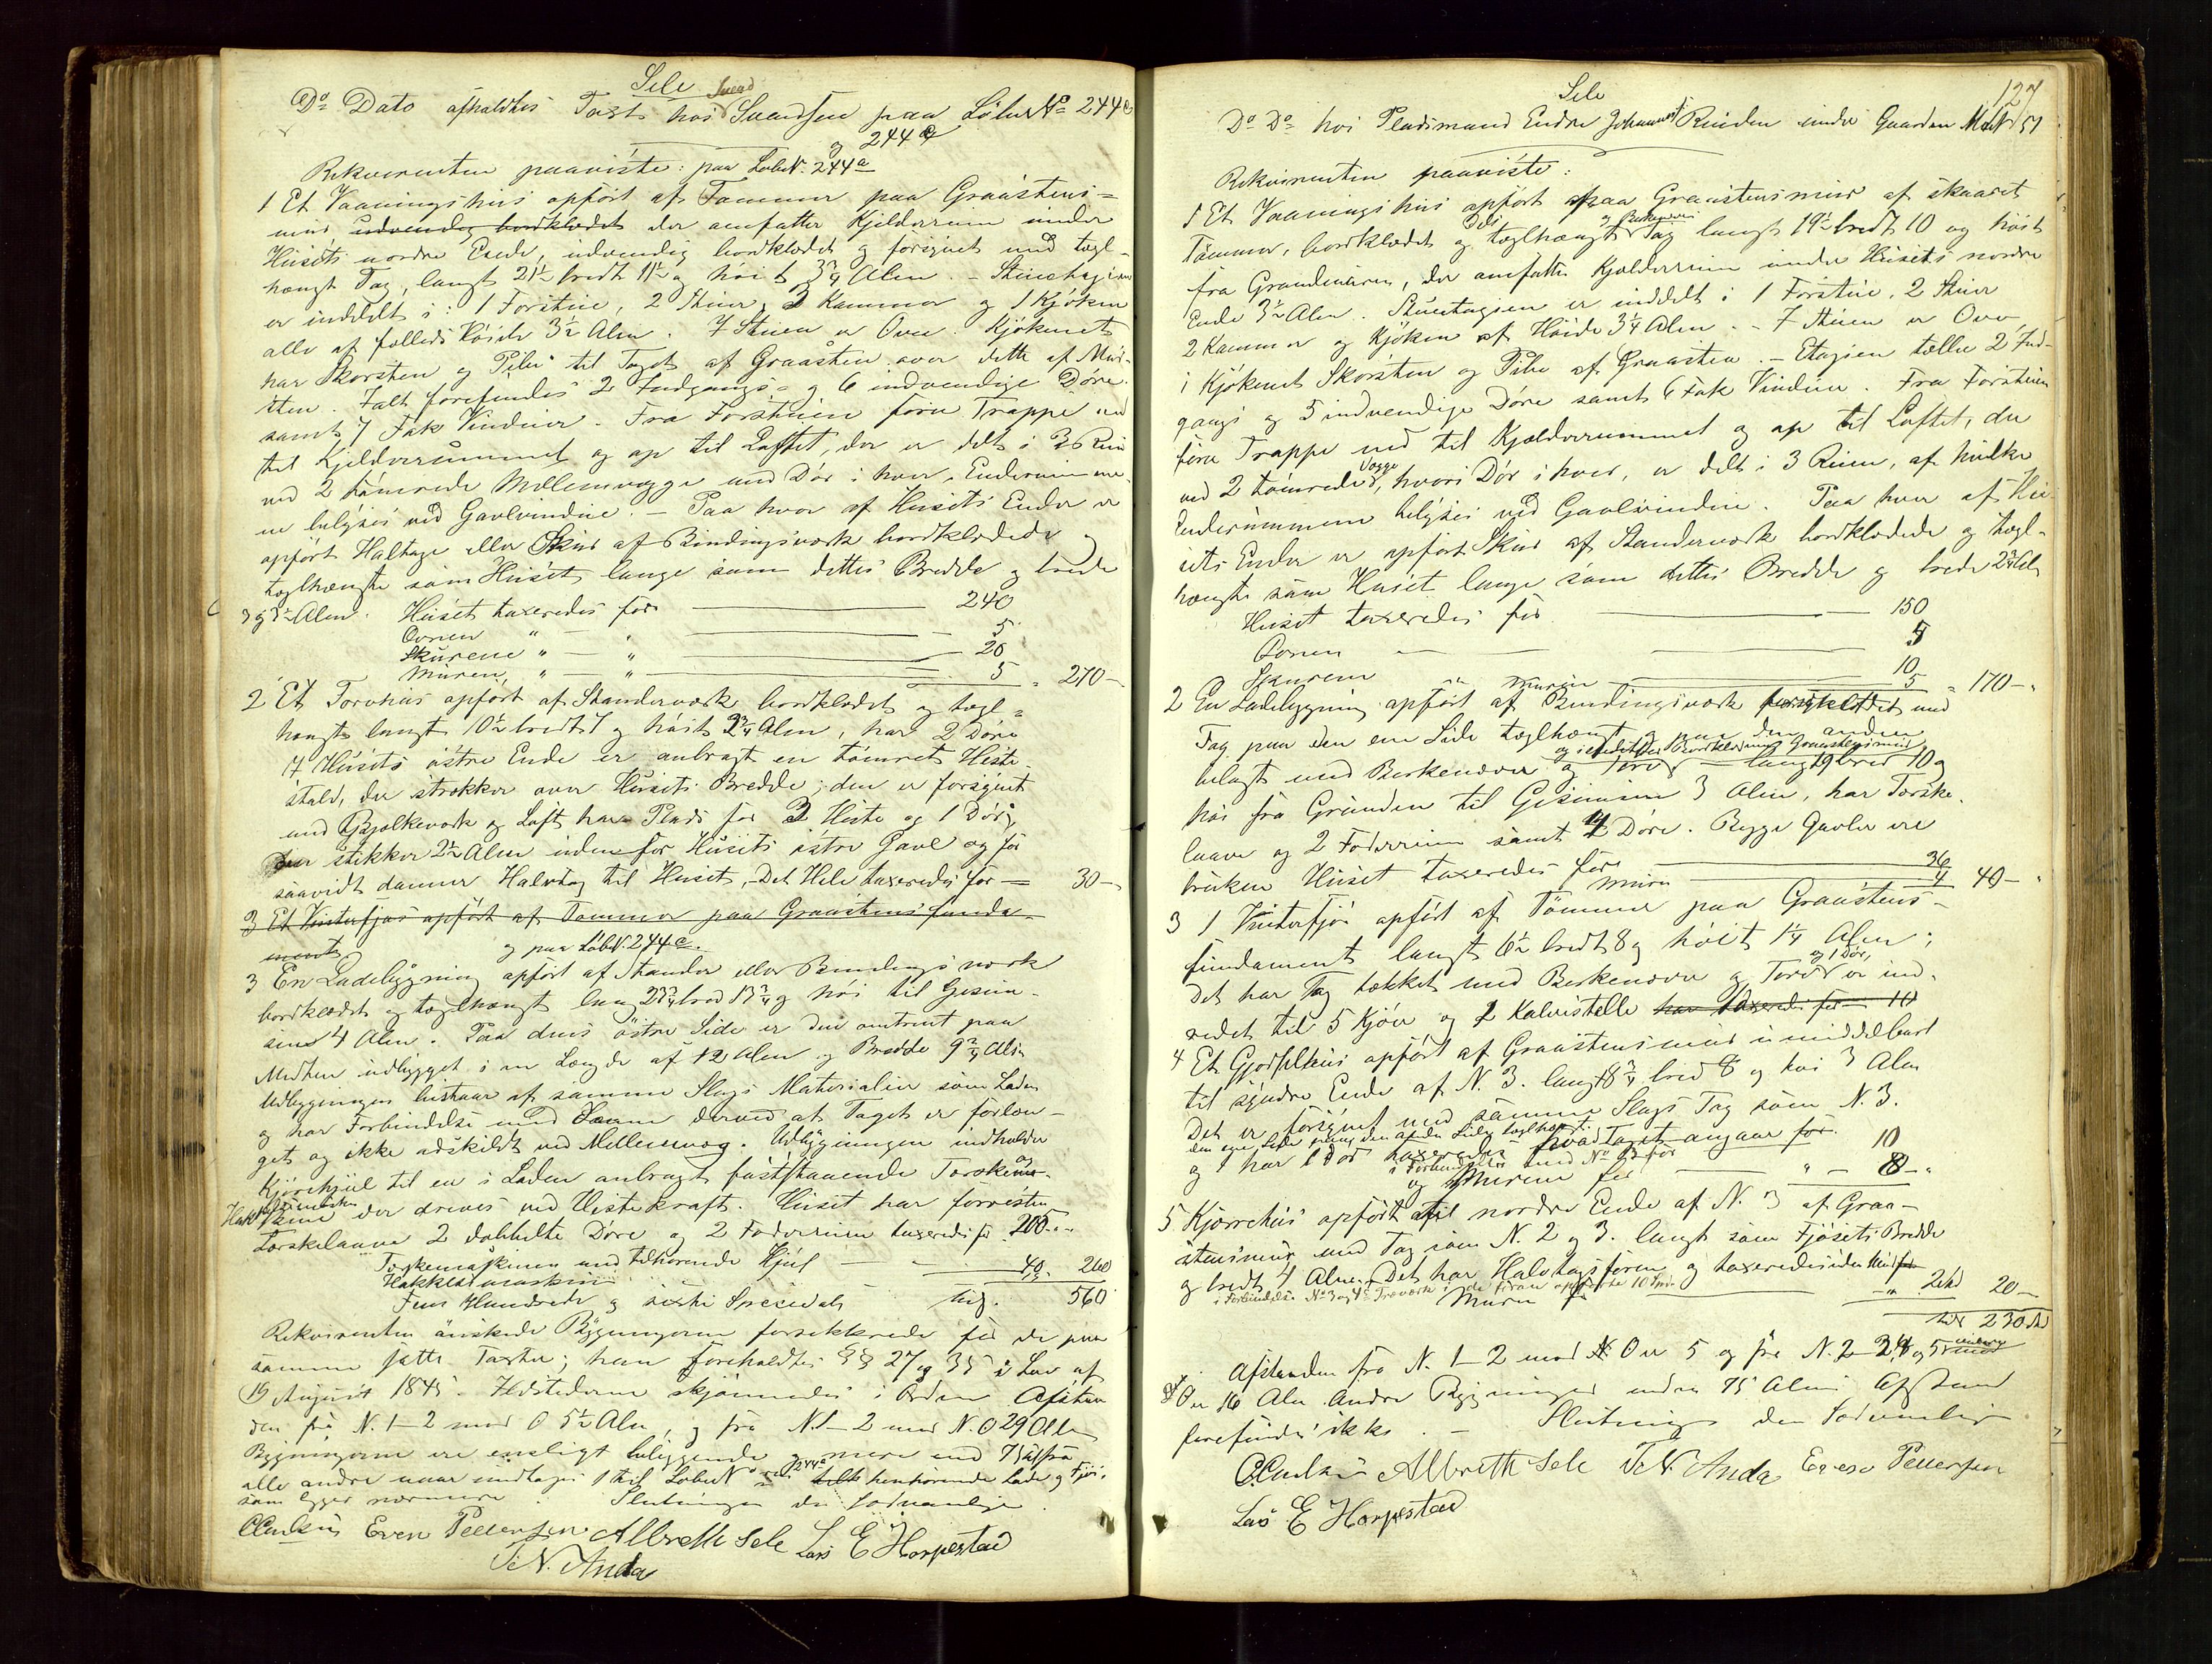 Sele
Do Dato afholdtes Taxt hos Svend Svendsen paa LöbeNo 244a
og 244c
Rekvirenten paaviste: paa LöbeN. 244a
1 Et Vaaningshus opført af Tømmer paa Graastens-
mur udvendig bordklædet der omfatter Kjelderrum under
Husets nordre Ende, udvendig bordklædet og forsynet med tægl-
hængt Tag, langt 21½ bredt 11½ og höit 3¾ Alen. – Stueetagien
er inddelt i: 1 Forstue, 2 Stuer, 3 Kammer og 1 Kjöken
alle af fælleds Höide 3½ Alen. I Stuen er Ovn. Kjökenets
har Skorsten og Pibe til Taget af Graasten over dette af Mur-
sten. Ialt forefindes 2 Indgangs- og 6 indvendige Döre
samt 7 Fak Vinduer. Fra Forstuen förer Trappe ned
til Kjelderrummet og op til Loftet, der er delt i 3 Rum
ved 2 tömrede Mellemvægge med Dör i hver. Enderummene
er belyses ved Gavlvindue. – Paa hver af Husets Ender er
opfört Halvtage eller Skur af Bindingsværk bordklædede og
tæglhængte som Huset lange som dettes Bredde og brede
3 og 3½ Alen. Huset taxeredes for 240
Ovnen " – " 5
Skurene " – " 20
Muren " – " 5 " 270 –
2 Et Torvhus opfört af Standerværk bordklædet og tægl-
hængt langt 10½ bredt 7 og höit 2¾ Alen, har 2 Döre
I Husets östre Ende er anbragt en tömret Heste-
stald, der strækker over Husets Bredde; den er forsynet
med Bjelkeværk og Loft har Plads for 3 Heste og 1 Dör,
der stikker 2½ Alen udenfor Husets östre Gavl og for
saavidt danner Halvtag til Huset. Det Hele taxeredes for – 30 –
3 Et Vinterfjøs opført af Tømmer paa Graastens funda-
ment
og paa LöbeN. 244c.
3 En Ladebygning opfört af Stander eller Bindingsværk
bordklædet og tæglhængt lang 23¾ bred 13¾ og höi til Gesim-
sen 4 Alen. Paa dens östre Side er den omtrent paa
Midten udbygget i en Længde af 12 Alen og Bredde 9¾ Alen
Udbygningen bestaar af samme Slags Materialier som Laden
og har Forbindelse med Samme derved at Taget er forlæn-
get og ikke adskildt ved Mellemvæg. Udbygningen indholder
Kjörehjul til en i Laden anbragt faststaaende Torskema- og
Hakkelsmaskin
skine der drives ved Hestekraft. Huset har forresten
Torskelaave 2 dobbelte Döre og 2 Foderrum taxeredes for 200 –
Torskemaskinen med tilhørende Hjul 40 260
Hakkelsmaskin
Fem Hundrede og sexti Speciedaler tilsg. 560
Rekvirenten önskede Bygningerne forsikkrede for de paa
samme satte Taxter; han foreholdtes §§ 27 og 35 i Lov af
19 August 1845. Ildstederne skjönnedes i Orden Afstan
den fra N. 1–2 mod O 5½ Alen, og fra N. 1–2 mod N.O 29 Alen
Bygningerne ere ensligt beliggende og mere end 75 Al fra
alle andre naar undtages 1 til LöbeN 244 henhørende Lade og Fjös,
som ligger nærmere. Slutningen den sædvanlige
Even Pedersen Albrett Sele Lars E Horpestad
T. N. Anda
127
Sele
Do Do hos Pladsmand Endre Johannes Reiden under Gaarden MatN 51
Rekvirenten paaviste:
1 Et Vaaningshus opfört paa Graastensmur af skaaret
Tömmer, bordklædet og dels tæglhængt Tag langt 19½ bredt 10 og höit
fra Grundmuren, der omfatter Kjelderrum under Husets nordre
Ende 3½ Alen. Stueetagien er inddelt i 1 Forstue, 2 Stuer
2 Kammer og Kjöken af Höide 3¼ Alen. – I Stuen er Ovn
i Kjökenet Skorsten og Pibe af Graasten. – Etagien tæller 2 Ind-
gangs og 5 indvendige Döre samt 6 Fak Vinduer. Fra Forstuen
förer Trappe ned til Kjælderrummet og op til Loftet, der
ved 2 tömrede Vægge, hvori Dör i hver, er delt i 3 Rum, af hvilke
Enderummene belyses ved Gavlvindue. Paa hver af Hu-
sets Ender er opfört Skur af Standerværk bordklædede og tægl-
hængte som Huset lange som dettes Bredde og brede 2¾ Al.
Huset taxeredes for 150
Ovnen 5
Skurene 10
Muren 5 " 170 – "
2 En Ladebygning opfört af Bindingsværk bordklædet med
Tag paa den ene Side tæglhængt og paa den anden
belagt med Birkenæver og Torv langt 19 bred 10 og
höi fra Grunden til Gesimsen 3 Alen, har Torske-
laave og 2 Foderrum samt 4 Döre. Begge Gavler ere
brukne Huset taxeredes for 36
Muren 4 40 – "
3 1 Vinterfjös opfört af Tömmer paa Graastens-
fundament langt 6½ bredt 8 og höit 1¼ Alen;
Det har Tag tækket med Birkenæver og Torv og 1 Dör, er ind-
redet til 5 Kjöer og 2 Kalvestelle har taxeredes for 10
4 Et Gjödselhus opfört af Graastensmur umiddelbart
til söndre Ende af N. 3. langt 8¾ bred 8 og höi 3 Alen
Det er forsynet med samme Slags Tag som N. 3.
og 1 har 1 Dör taxeredes hvad Taget angaar for
i Forbindelse med No 3 for 10
og Murene for " – 8 – "
5 Kjörrehus opfört til nordre Ende af N. 3 af Graa-
stensmur med Tag som N. 2 og 3. langt som Fjösets Bredde
og bredt 4 Alen. Det har Halvtagsform og taxeredes uden Mur for
Muren 2 20 –
tils 230
Afstanden fra N. 1–2 mod O er 5 og fra N. 2–3, 4 og 5
O er 16 Alen Andre Bygninger under 75 Alens Afstand
forefindes ikke. – Slutningen den Sædvanlige
Albrett Sele T. N. Anda Even Pedersen
Lars E Horpestad